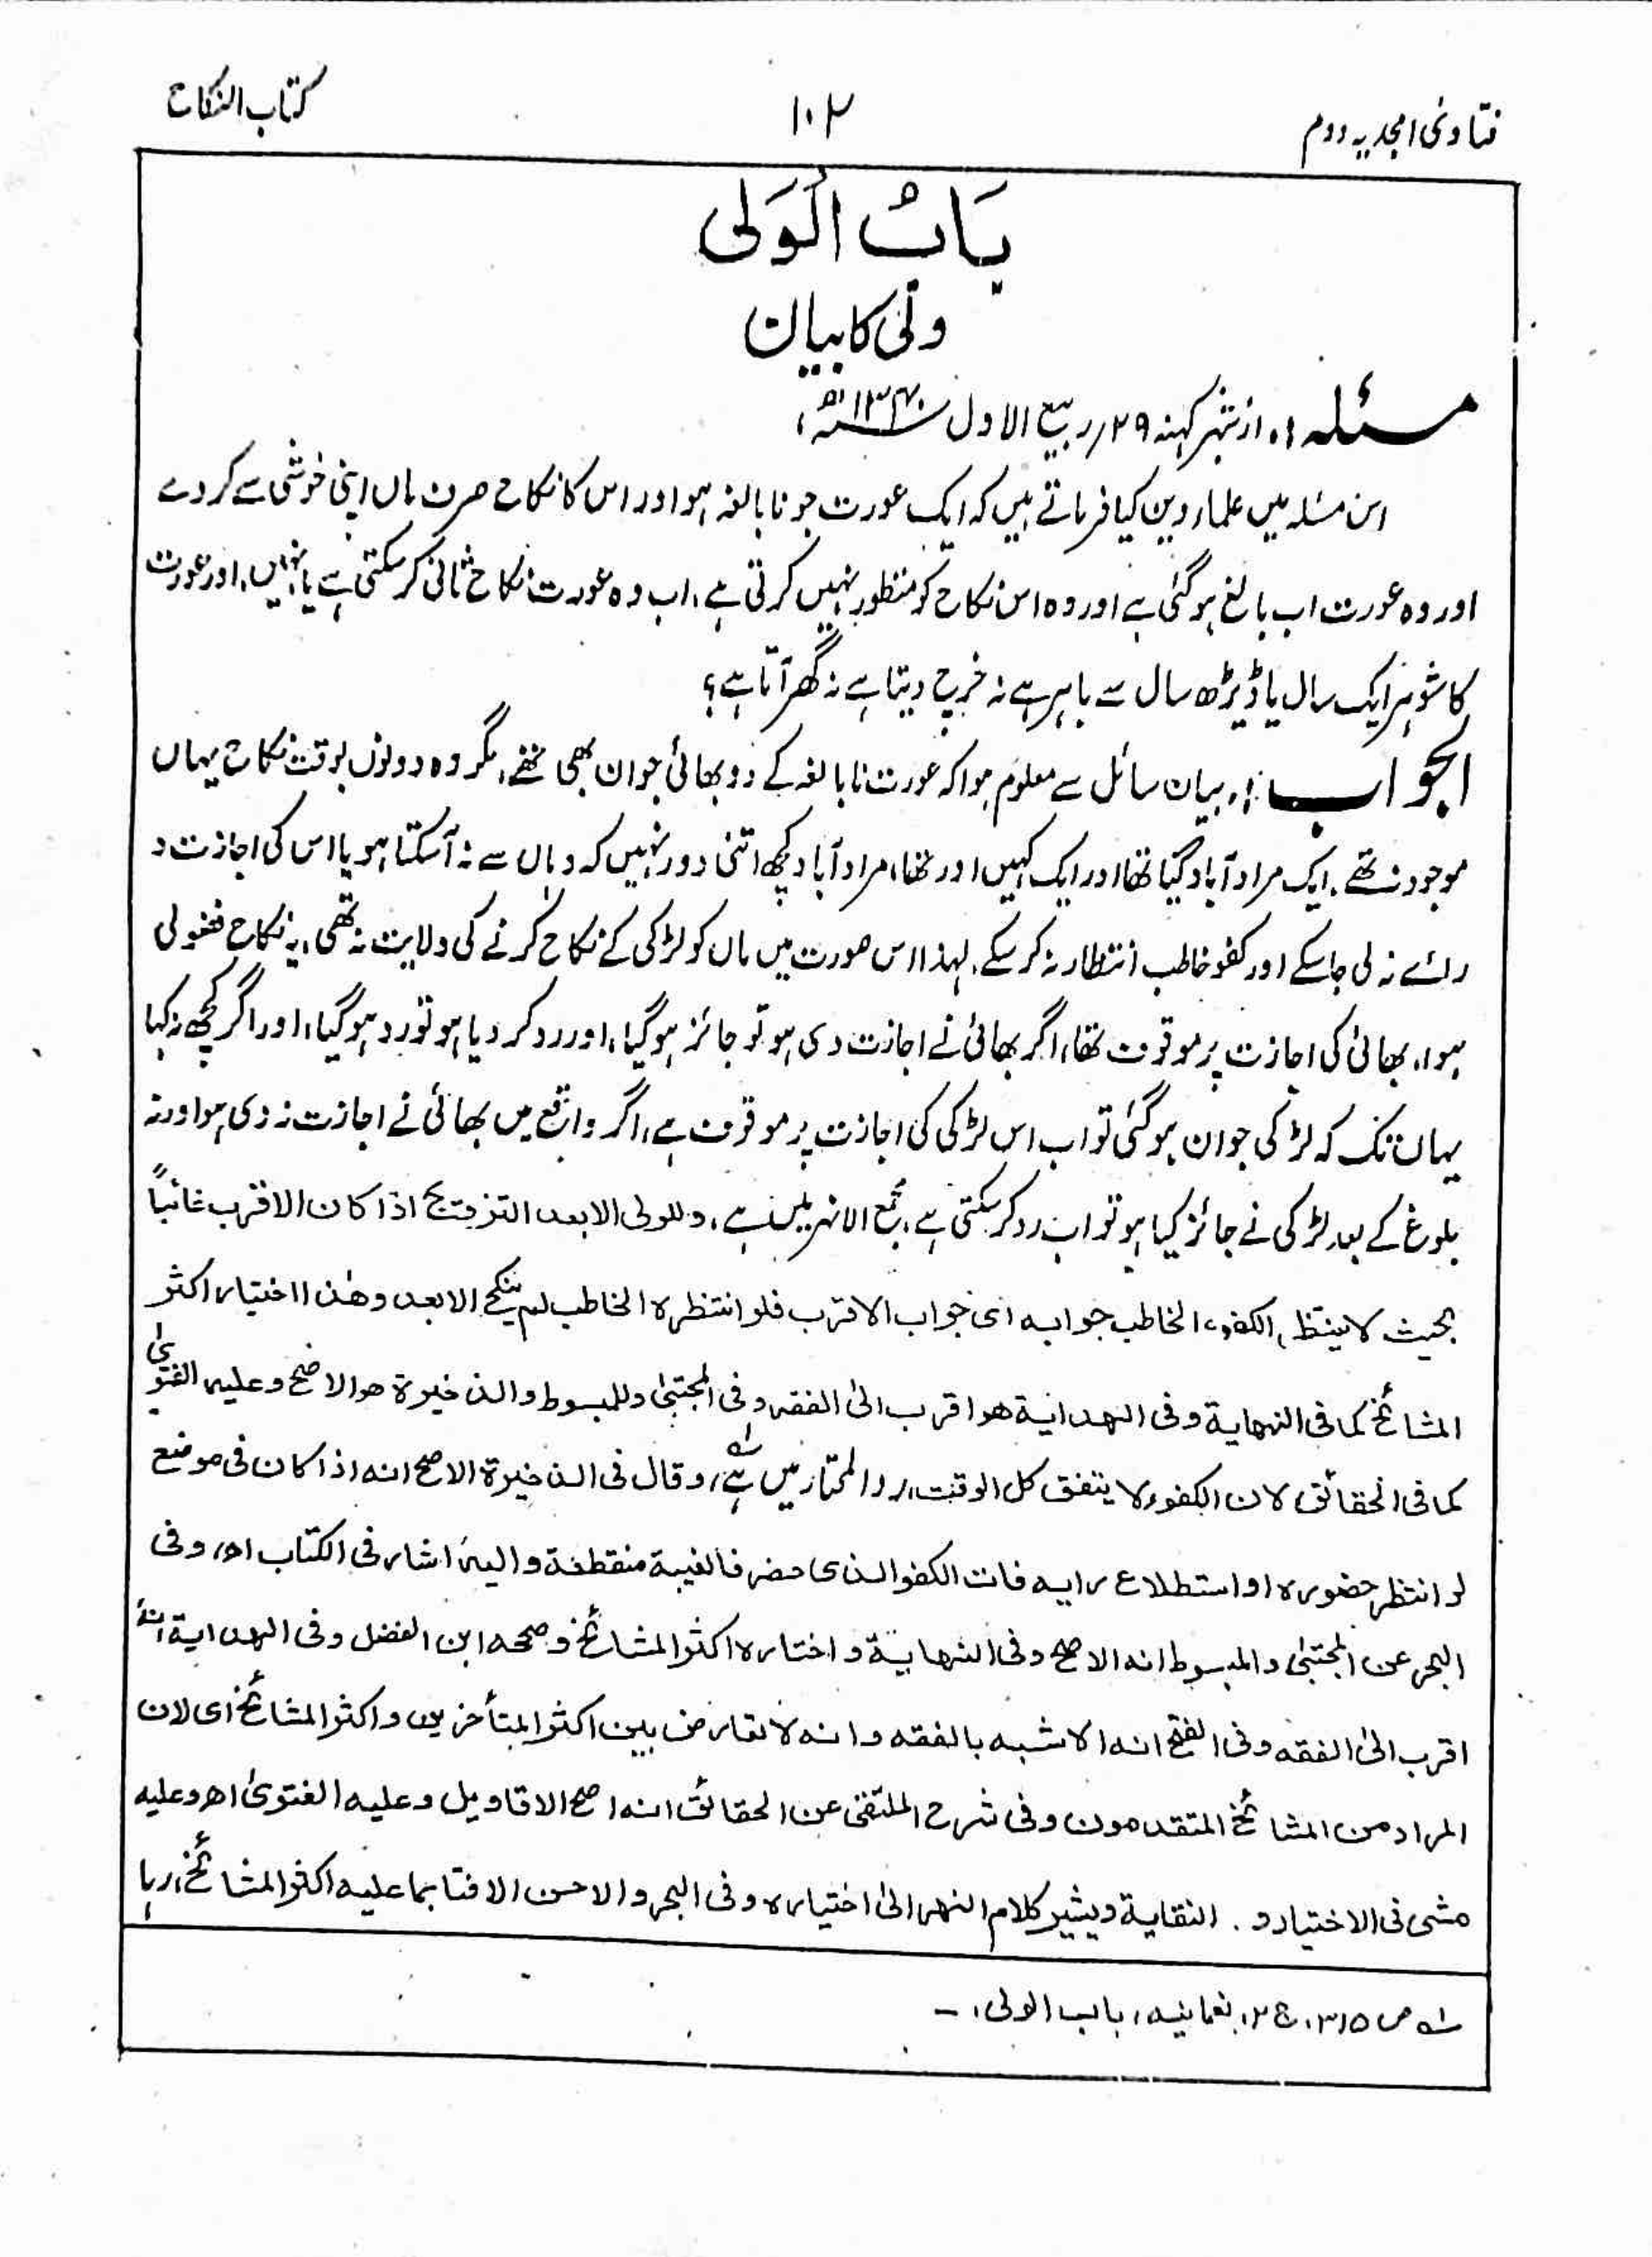 فتاویٰ امجدیہ دوم
۱۰۲
کتاب النکاح
بَابُ الْوَلی
ولی کا بیان
مسئلہ :۔ از شہر کہنہ ۲۹؍ ربیع الاول ۱۳۴۰ھ
اس مسئلہ میں علماء دین کیا فرماتے ہیں کہ ایک عورت جو نابالغہ ہو اور اس کا نکاح صرف ماں اپنی خوشی سے کردے
اور وہ عورت اب بالغ ہوگئی ہے اور وہ اس نکاح کو منظور نہیں کرتی ہے، اب وہ عورت نکاح ثانی کرسکتی ہے یا نہیں، اور عورت
کا شوہر ایک سال یا ڈیڑھ سال سے باہر ہے نہ خرچ دیتا ہے نہ گھر آتا ہے؟
الجواب :۔ بیان سائل سے معلوم ہوا کہ عورت نابالغہ کے دو بھائی جوان بھی تھے، مگر وہ دونوں بوقت نکاح یہاں
موجود نہ تھے، ایک مراد آباد گیا تھا اور ایک کہیں اور تھا، مراد آباد کچھ اتنی دور نہیں کہ وہاں سے نہ آسکتا ہو یا اس کی اجازت و
رائے نہ لی جاسکے اور کفو خاطب انتظار نہ کرسکے، لہذا اس صورت میں ماں کو لڑکی کے نکاح کرنے کی ولایت نہ تھی، یہ نکاح فضولی
ہوا، بھائی کی اجازت پر موقوف تھا، اگر بھائی نے اجازت دی ہو تو جائز ہوگیا، اور رد کر دیا ہو تو رد ہوگیا، اور اگر کچھ نہ کہا
یہاں تک کہ لڑکی جوان ہوگئی تو اب اس لڑکی کی اجازت پر موقوف ہے، اگر واقع میں بھائی نے اجازت نہ دی ہو اور نہ
بلوغ کے بعد لڑکی نے جائز کیا ہو تو اب رد کرسکتی ہے، مجمع الانہر میں ہے، وللولی الابعد التزویج اذا کان الاقرب غائباً
بحیث لاینتظر الکفوء الخاطب جوابہ ای جواب الاقرب فلو انتظرہ الخاطب لم ینکح الابعد وھذا اختیار اکثر
المشائخ کما فی النہایة وفی الہدایة ھو اقرب الی الفقہ وفی المجتبیٰ وللمبسوط والذخیرة ھو الاصح وعلیہ الفتویٰ
کما فی الحقائق لان الکفوء لا یتفق کل الوقت، رد المحتار میں ہے، وقال فی الذخیرة الاصح انہ اذا کان فی موضع
لو انتظر حضورہ او استطلاع رایہ فات الکفو الذی حضر فالغیبة منقطعة والیہ اشار فی الکتاب اھ، وفی
البحر عن المجتبیٰ والمبسوط انہ الاصح وفی النہایة واختارہ اکثر المشائخ وصححہ ابن الفضل وفی الہدایة انہ
اقرب الی الفقہ وفی الفتح انہ الاشبہ بالفقہ وانہ لا تعارض بین اکثر المتأخرین واکثر المشائخ ای لان
المراد من المشائخ المتقدمون وفی شرح الملتقی عن الحقائق انہ اصح الاقاویل وعلیہ الفتویٰ اھ وعلیہ
مشی فی الاختیار و. النقایة ویشیر کلام النہر الی اختیارہ وفی البحر والاحسن الافتا بما علیہ اکثر المشائخ، رہا
لہ ص ۳۱۵، ج ۲، نعمانیہ، باب الولی، ۔